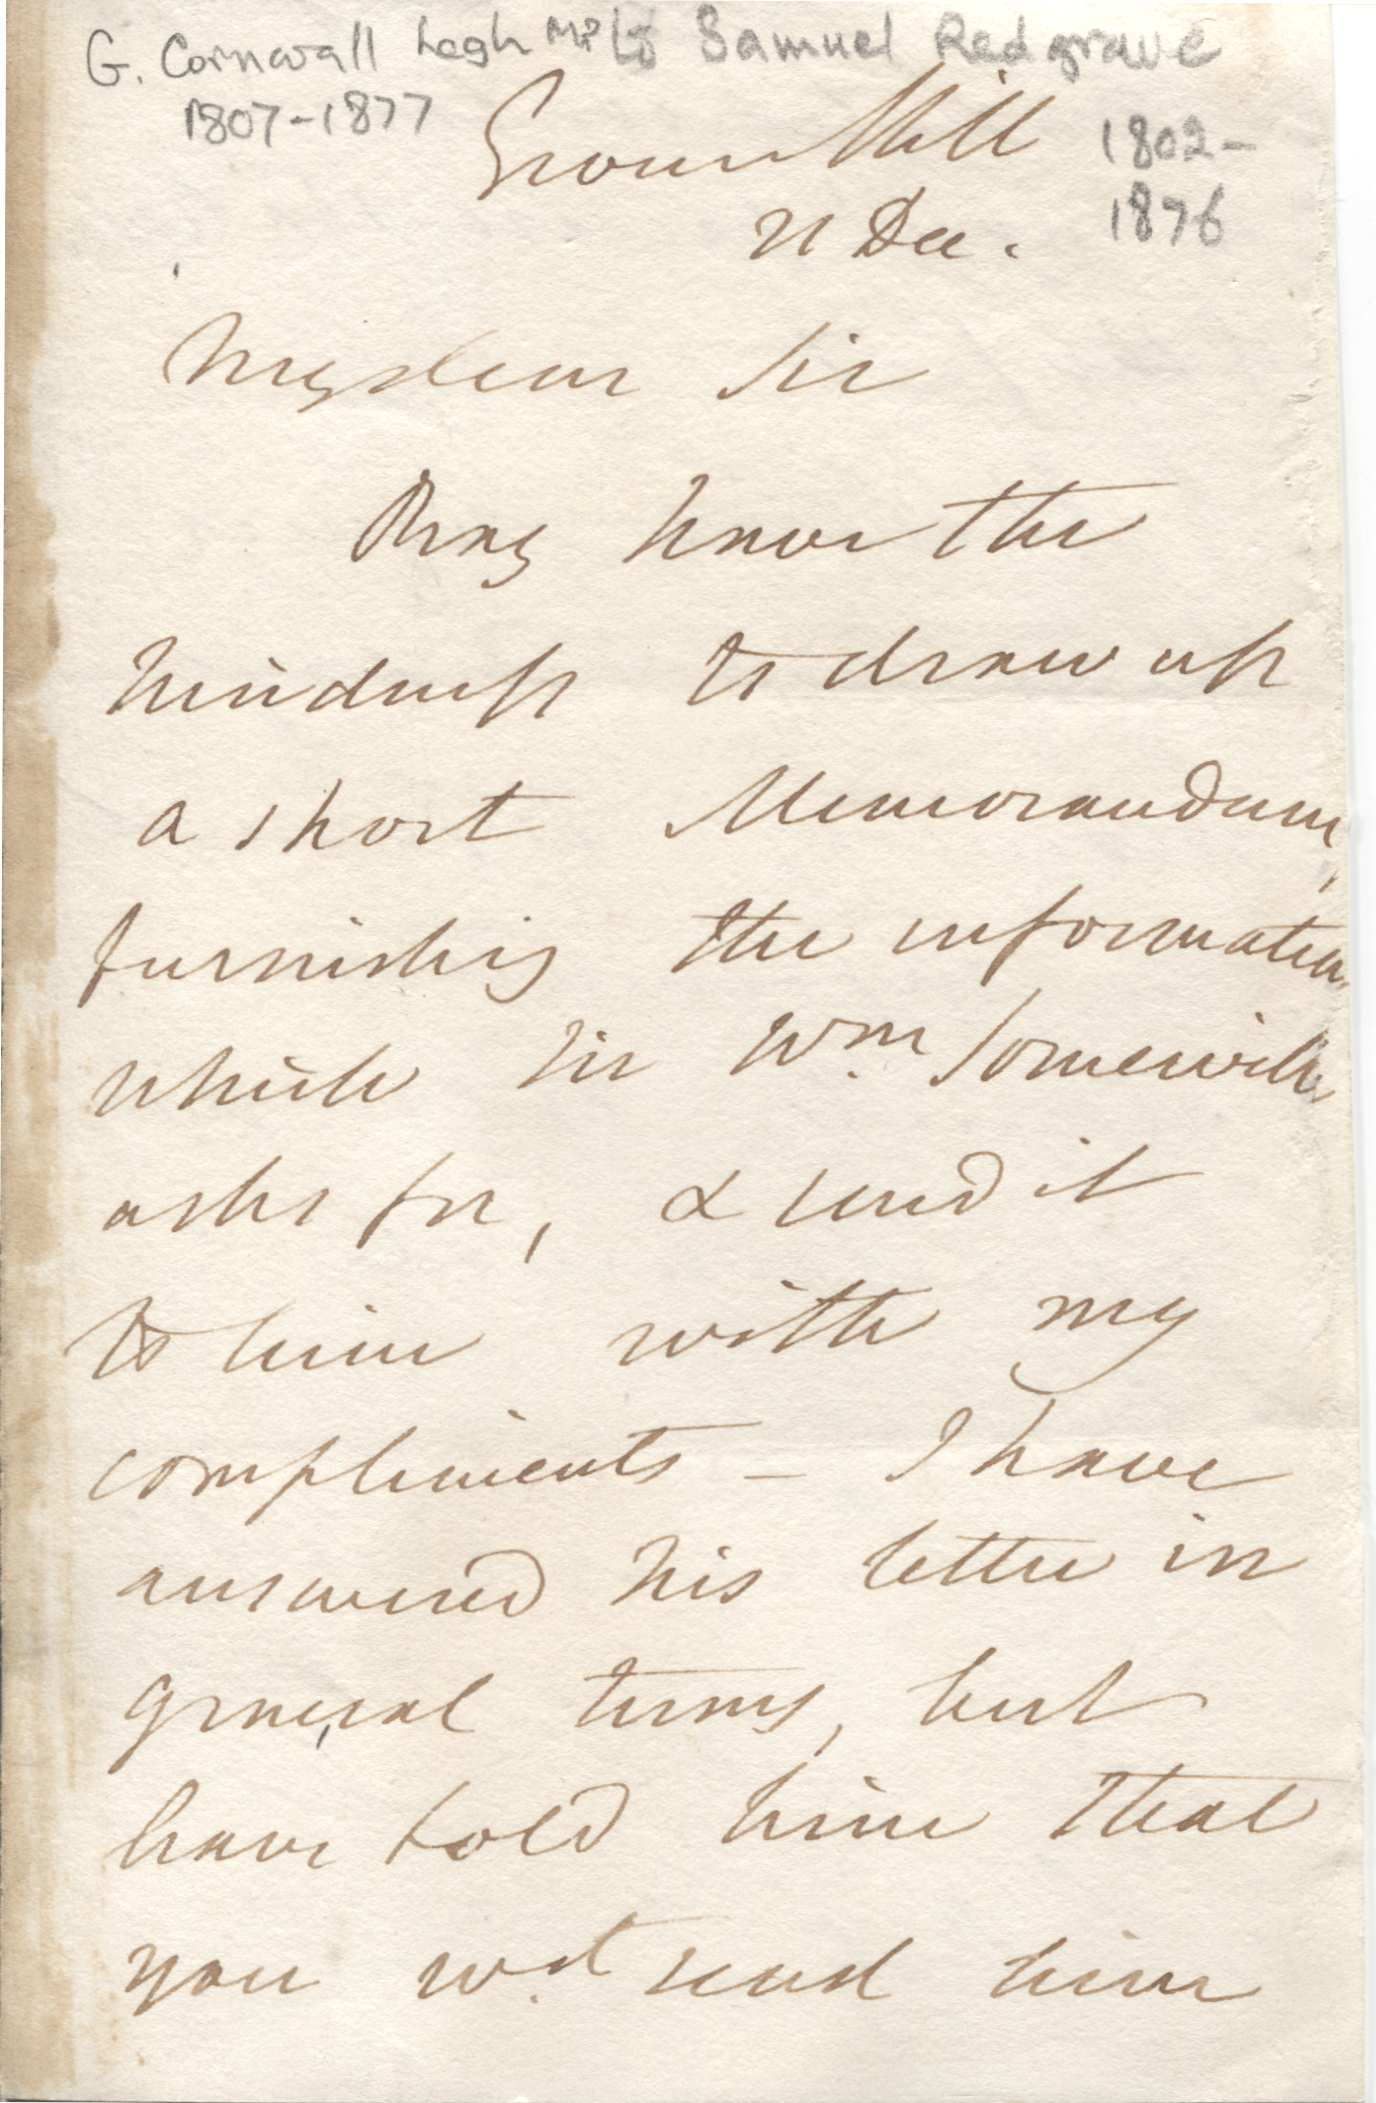 G. Cornwall Legh MP to Samuel Redgrave
1807-1877
1802-
1876
Grove Mill
21 Dec.
My dear Sir
Pray have the
kindness to draw up
a short Memorandum,
furnishing the information
which Sir Wm. Somerville
asks for, & send it
to him with my
compliments – I have
answered his letter in
general terms, but
have told him that
you wd. send him